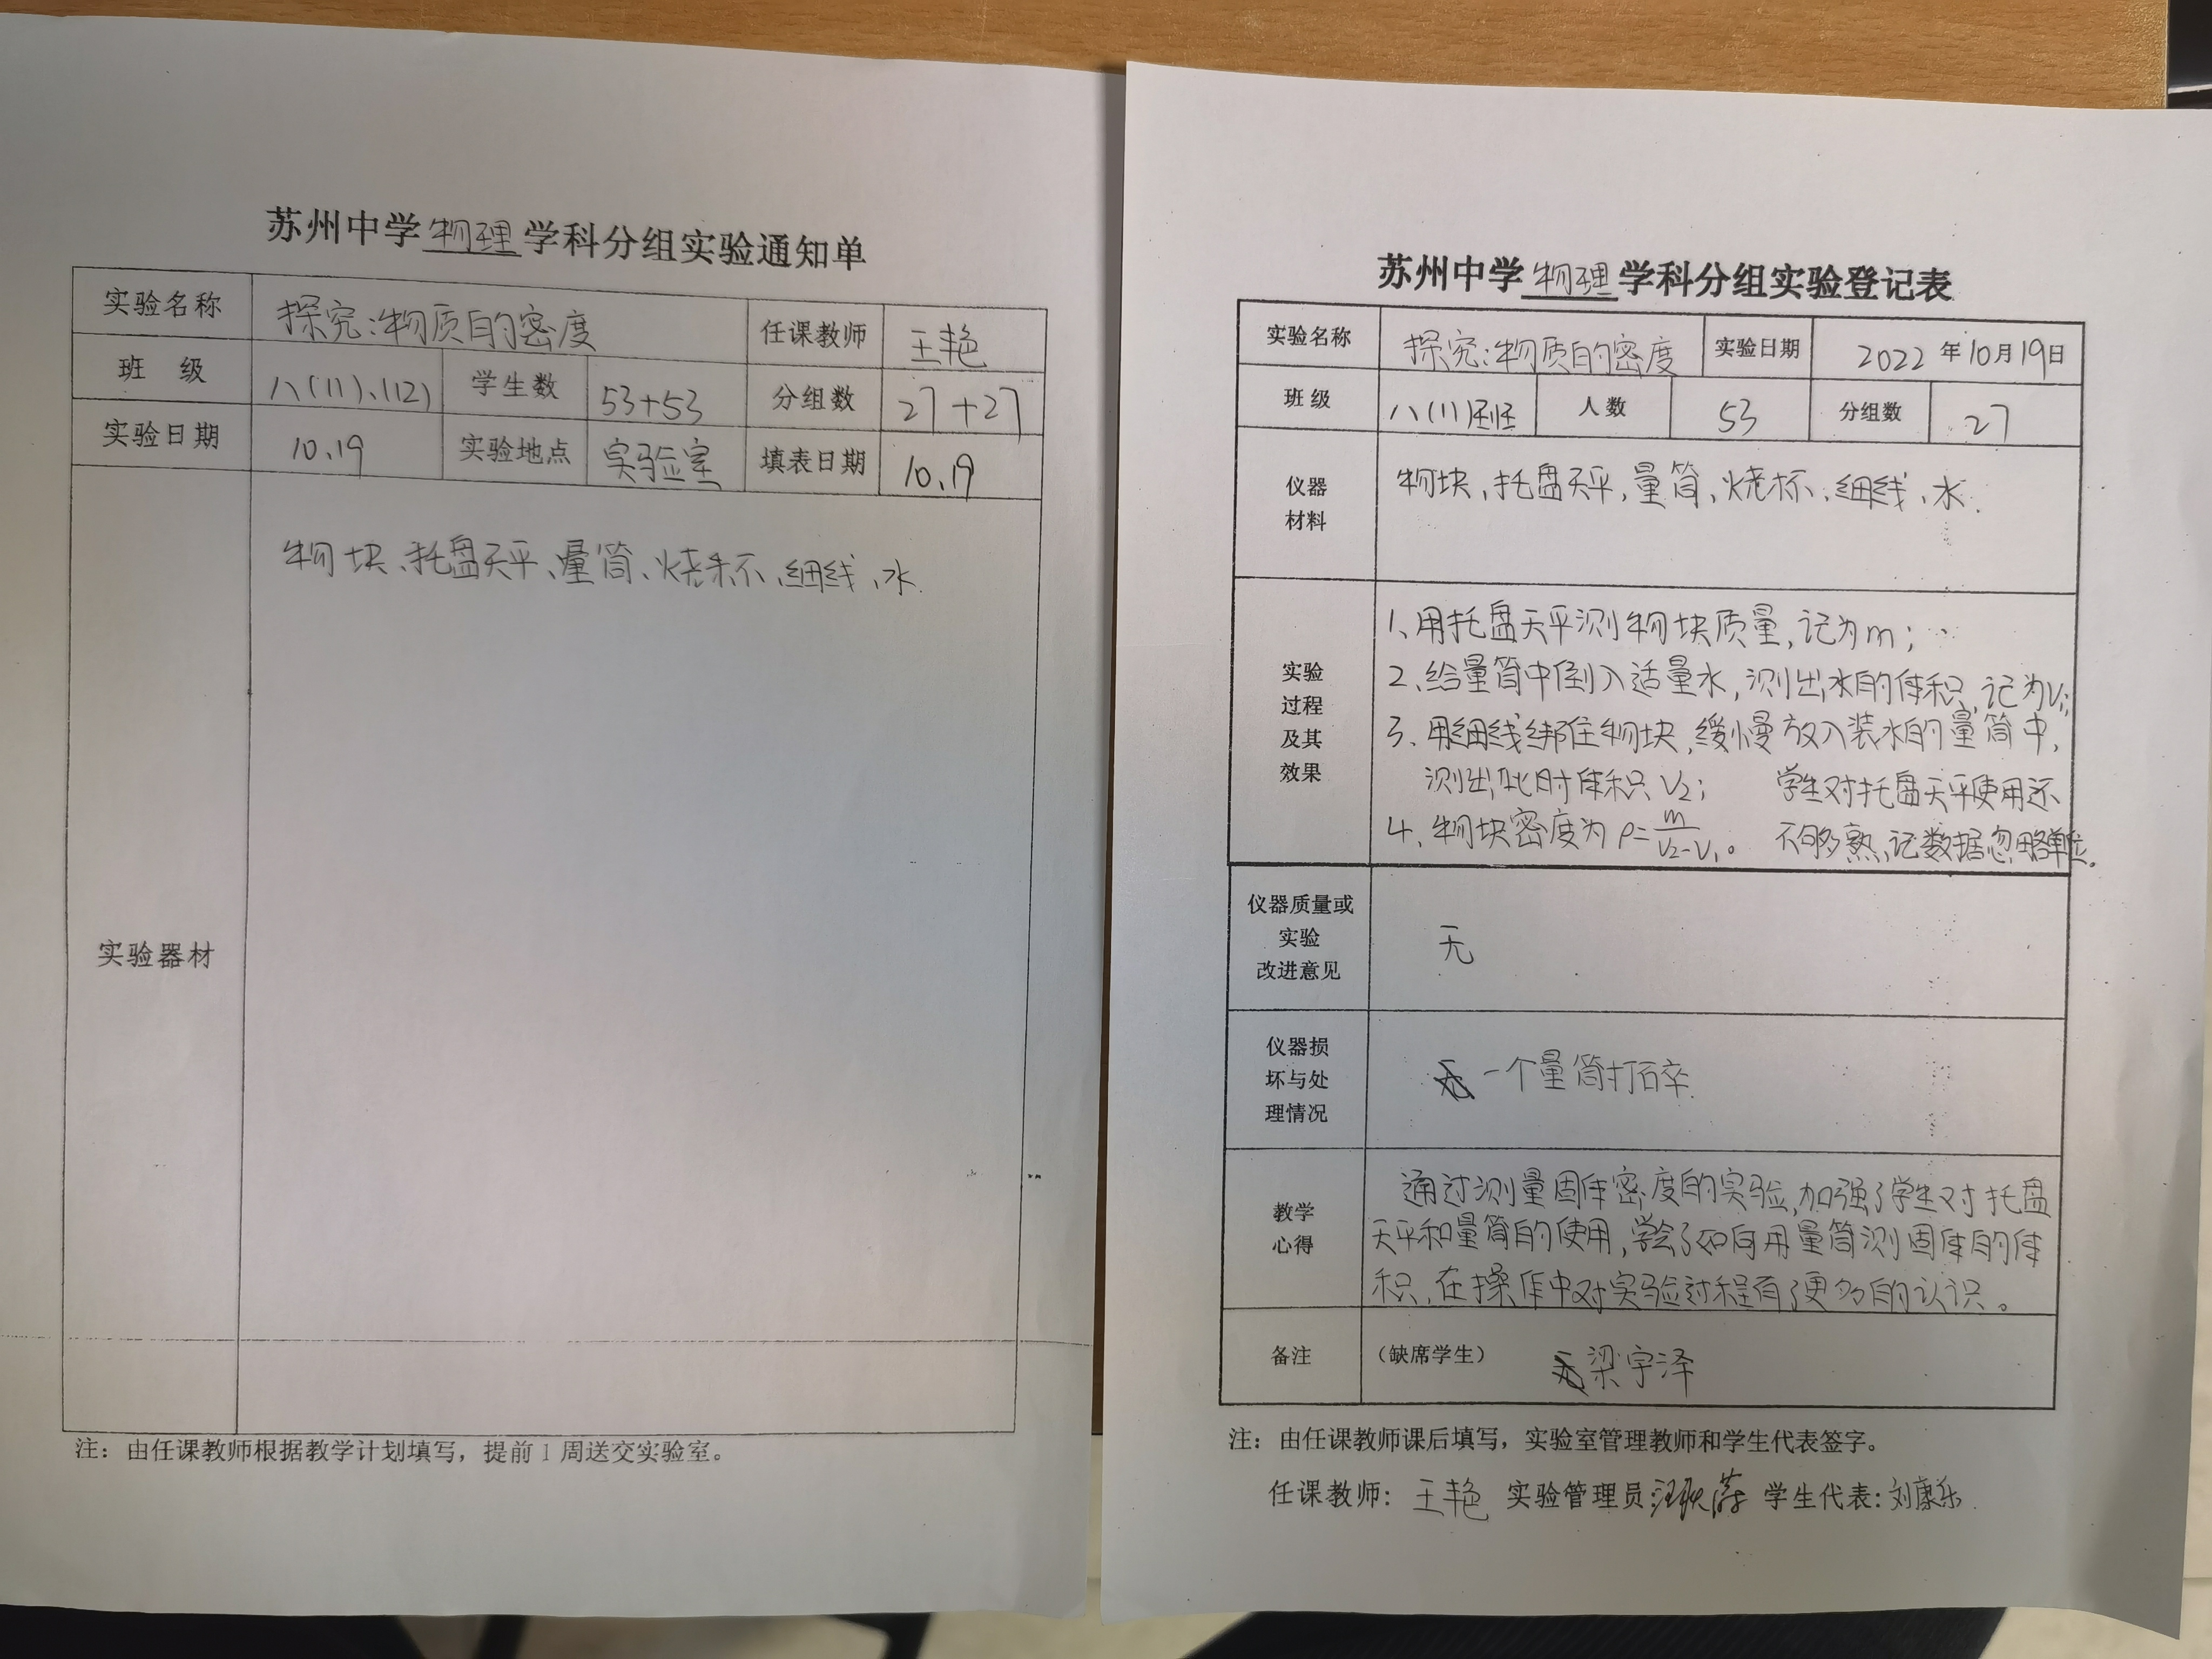 苏州中学物理学科分组实验通知单
实验名称 探究:物质的密度 任课教师 王艳
班 级 八(11)、(12) 学生数 53+53 分组数 27+27
实验日期 10.19 实验地点 实验室 填表日期 10.19
物块、托盘天平、量筒、烧杯、细线、水.
实验器材
注：由任课教师根据教学计划填写，提前1周送交实验室。
苏州中学物理学科分组实验登记表
实验名称 探究:物质的密度 实验日期 2022年10月19日
班级 八(11)班 人数 53 分组数 27
仪器
材料
物块、托盘天平,量筒、烧杯、细线、水.
实验
过程
及其
效果
1、用托盘天平测物块质量,记为m;
2、给量筒中倒入适量水,测出水的体积,记为V₁;
3、用细线绑住物块,缓慢放入装水的量筒中,
测出此时体积V₂; 学生对托盘天平使用还
4、物块密度为ρ=m/(V₂-V₁)。 不够多熟,记数据忽略单位。
仪器质量或
实验
改进意见
无
仪器损
坏与处
理情况
一个量筒打碎.
教学
心得
通过测量固体密度的实验,加强了学生对托盘
天平和量筒的使用,学会了如何用量筒测固体的体
积,在操作中对实验过程有了更多的认识。
备注 (缺席学生) 梁宇泽
注：由任课教师课后填写，实验室管理教师和学生代表签字。
任课教师: 王艳 实验管理员: 学生代表: 刘康乐